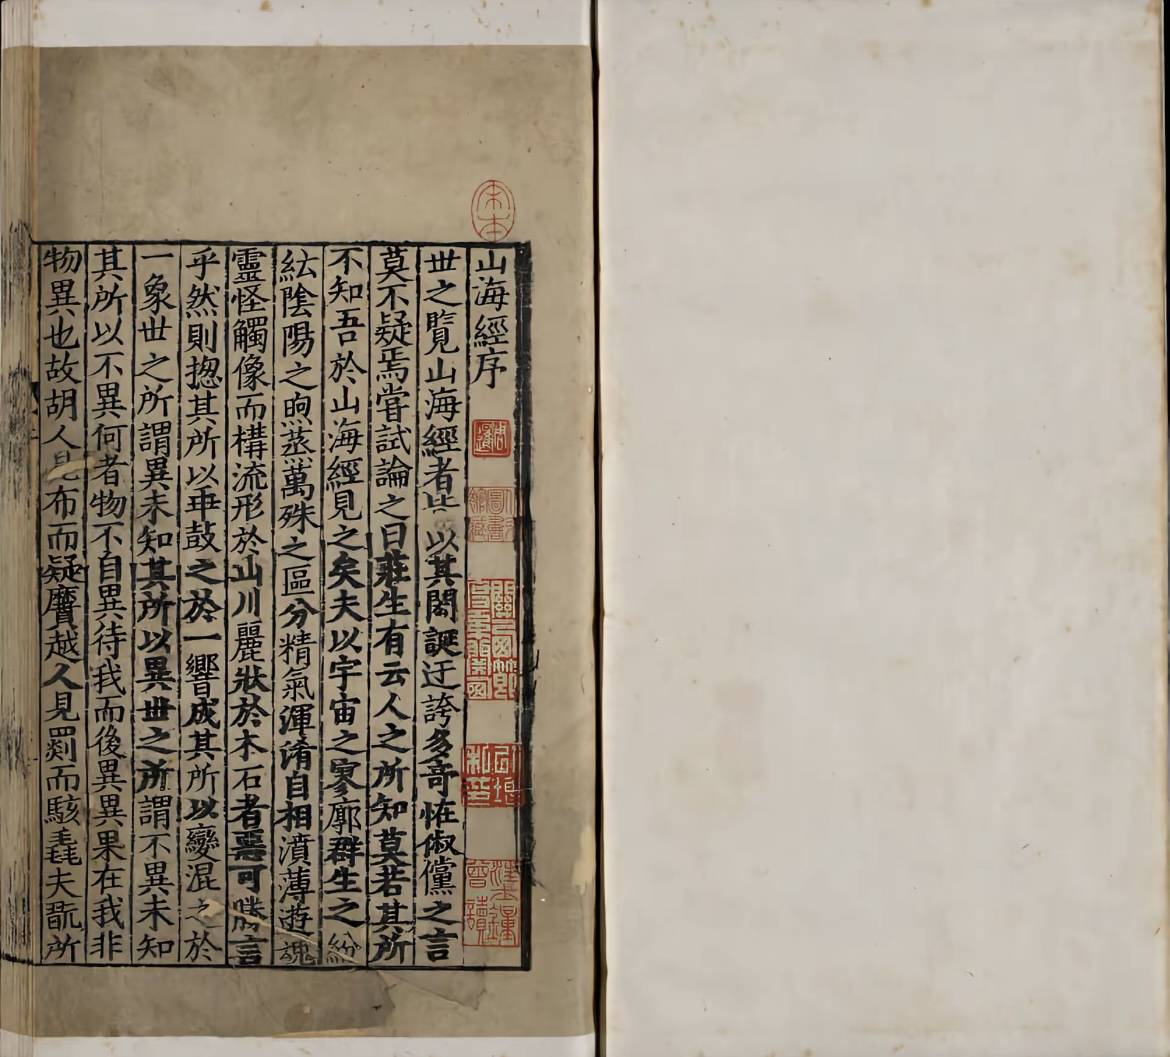 宋本
山海經序
世之覽山海經者皆以其閎誕迂誇多奇怪俶儻之言
莫不疑焉甞試論之曰莊生有云人之所知莫若其所
不知吾於山海經見之矣夫以宇宙之寥廓群生之紛
紜陰陽之煦蒸萬殊之區分精氣渾淆自相濆薄遊魂
靈怪觸像而構流形於山川麗狀於木石者惡可勝言
乎然則揔其所以乖鼓之於一響成其所以變混之於
一象世之所謂異未知其所以異世之所謂不異未知
其所以不異何者物不自異待我而後異異果在我非
物異也故胡人見布而疑黂越人見罽而駭毳夫翫所